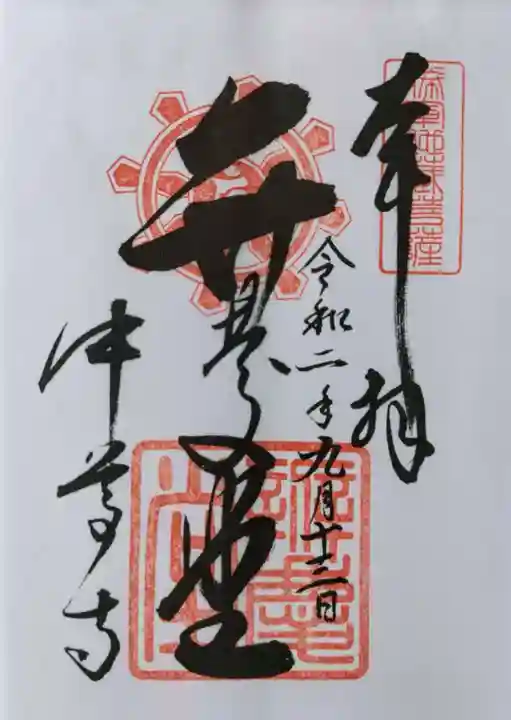 奉拝
令和二年九月十三日
弁慶堂
中尊寺